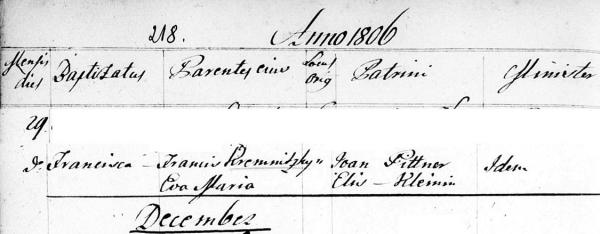 218. Anno 1806
Mensis dies Baptizatus Parentes eius Locus Orig Patrini Minister
29.
Francisca Francis Kremnitzky Joan Pittner Idem
Eva Maria Elis - Kleinin
December